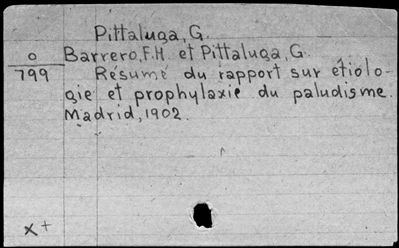 Pittaluga, G.
O Barrero, F.H. et Pittaluga, G.
799 Résumé du rapport sur étiolo-
gie et prophylaxie du paludisme.
Madrid, 1902.
x+